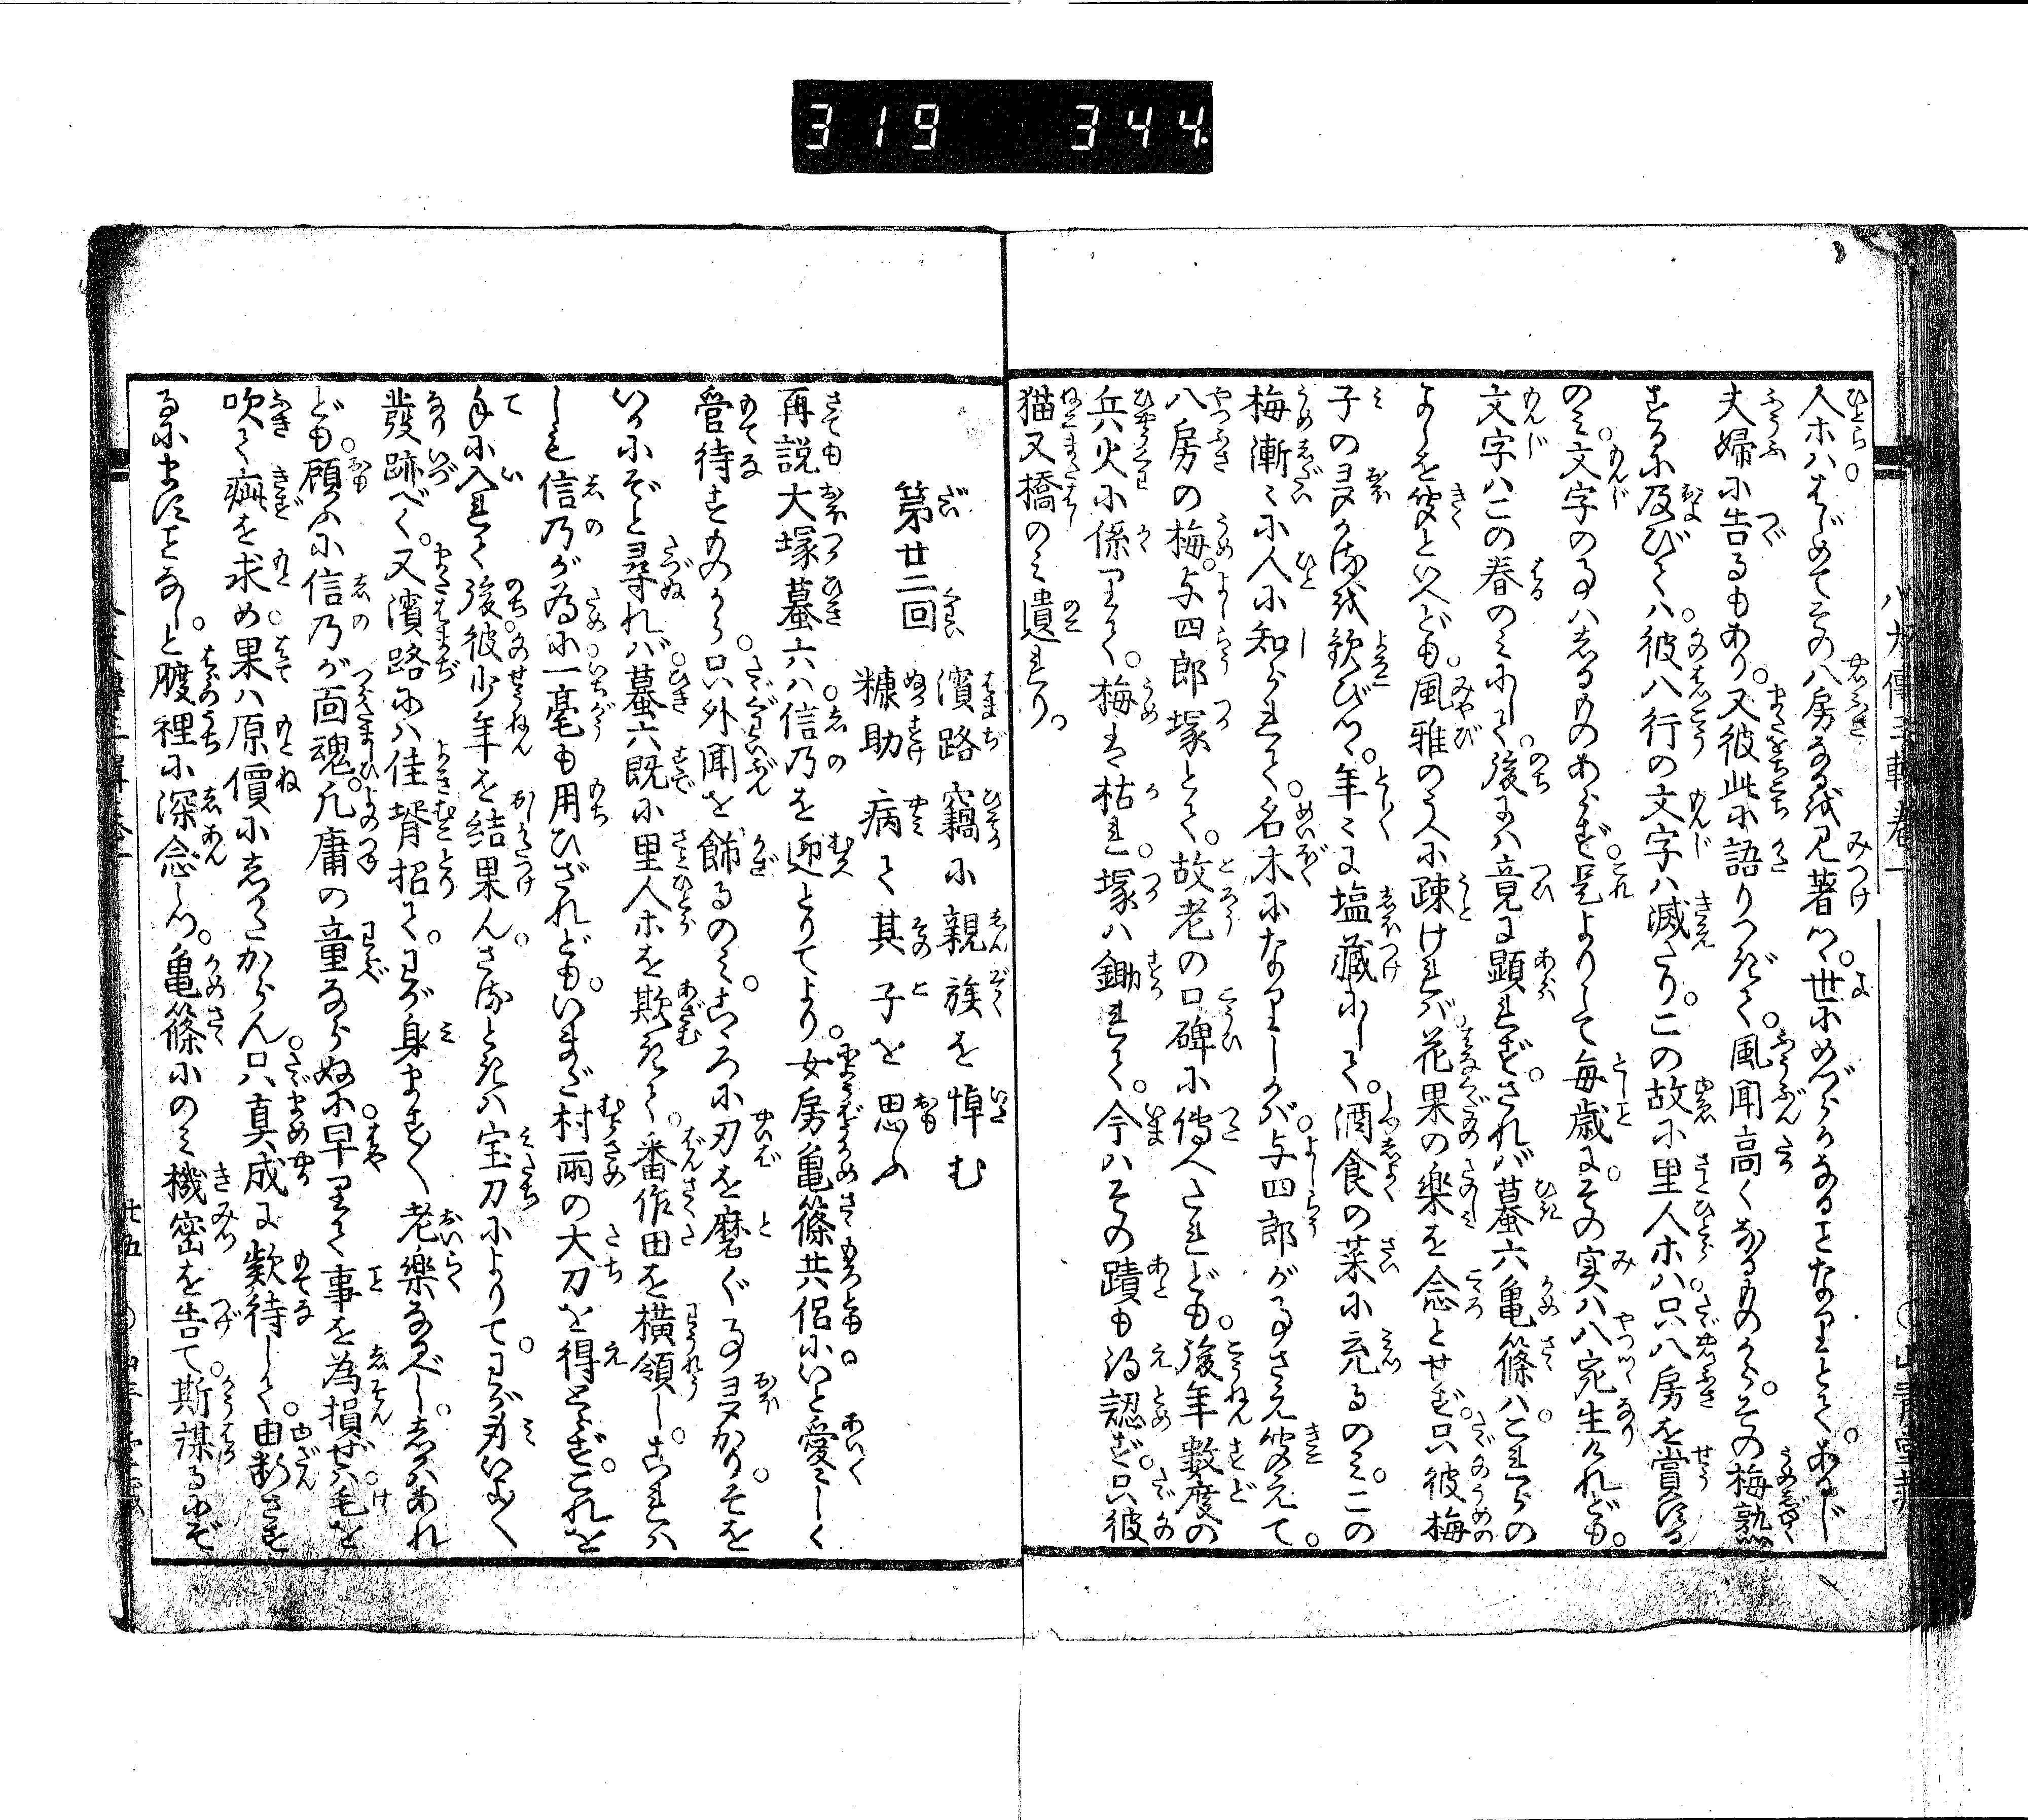 319 344
人ホハはじめてその八房なるを見著つ。世にめづらかなることなりとて。あるじ
夫婦に告るもあり。又彼此に語りつぎて。風聞高くなるものから。その梅熟
するに及びてハ。彼八行の文字ハ滅たり。この故に里人ホハ。只八房を賞する
のミ。文字の事ハしるものあらず。是よりして毎歳に。その実ハ八宛生りけれども。
文字ハこの春のミにして。後にハ竟に顕れず。されバ蟇六亀篠ハ。これらの
よしを聞といへども。風雅のうへに疎けれバ。花果の楽を念とせず。只彼梅
子の多かるを歓びつゝ。年々に塩蔵にして。酒食の菜に充るのミ。この
梅漸々に人に知られて。名木になりしかバ。与四郎が事さへ聞えて。
八房の梅。与四郎塚とて。故老の口碑に傳へたれども。後年数度の
兵火に係りて。梅ハ枯れ。塚ハ鋤れて。今ハその蹟も得認ず。只彼
猫又橋のミ遺れり。
第廿二回
濱路竊に親族を悼む
糠助病て其子を思ふ
再説大塚蟇六ハ。信乃を迎とりてより。女房亀篠共侶に。いと愛々しく
管待すものから。只外聞を飾るのミ。こゝろに刃を磨ぐ事多かり。そを
いかにぞと尋れバ。蟇六既に里人ホを欺きて。番作田を横領し。これハ
しも信乃が為に一毫も用ひざれども。いまだ村雨の大刀を得とらず。これを
手に入れて後。彼少年を結果ん。さるときハ宝刀によりて。わが身いよゝ
發跡べく。又濱路にハ佳壻招て。わが身まづく老樂なるべし。しかハあれ
ども。顧ふに信乃が面魂。凡庸の童ならぬに。早りて事を為損ぜバ。毛を
吹て疵を求め。果ハ原價にしかざらん。只真成に欵待して。由断さする
にますことなしと。腹裡に深念しつ。亀篠にのミ機密を告て。斯謀るにぞ
廿五